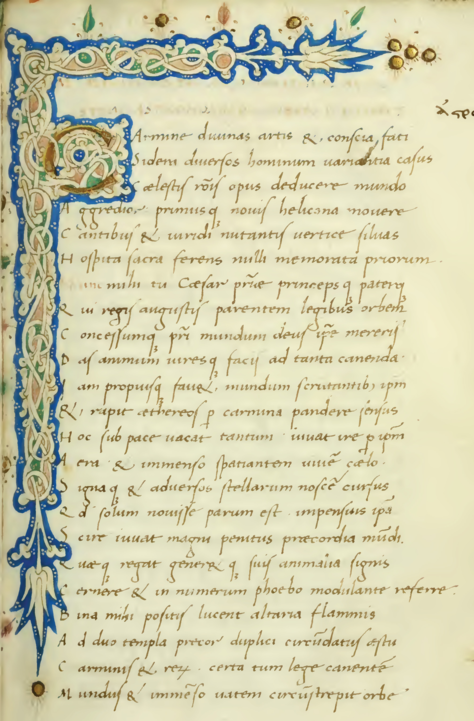 Carmine divinas artis &, conscia fati
Sidera diversos hominum variantia casus
Cælestis rōis opus deducere mundo
Aggredior primusq novis helicona movere
Cantibus & viridi nutantis vertice silvas
Hospita sacra ferens nulli memorata priorum.
mihi tu Cæsar prīæ princepsq paterq
Qui regis augustis parentem legibus orbem
Concessumq pr̄i mundum deus ip̄e mereris
Das animum viresq facis ad tanta canenda.
Iam propiusq fav&, mundum scrutantib;
&, cupit æthereos p carmina pandere sensus
Hoc sub pace vacat tantum. iuvat ire p
Aera & immenso spatiantem vivē cælo.
Signaq & adversos stellarum noscē cursus
Qd solum novisse parum est. impensius ipā
Scire iuvat magni penitus præcordia mūdi.
Quæq regat gener&q suis animalia signis
Cernere & in numerum phoebo modulante referre.
Bina mihi positis lucent altaria flammis
Ad duo templa precor duplici circūdatus æstu
Carminis &, rerū. certa cum lege canentē
Mundus & immēso vatem circūstrepit orbe